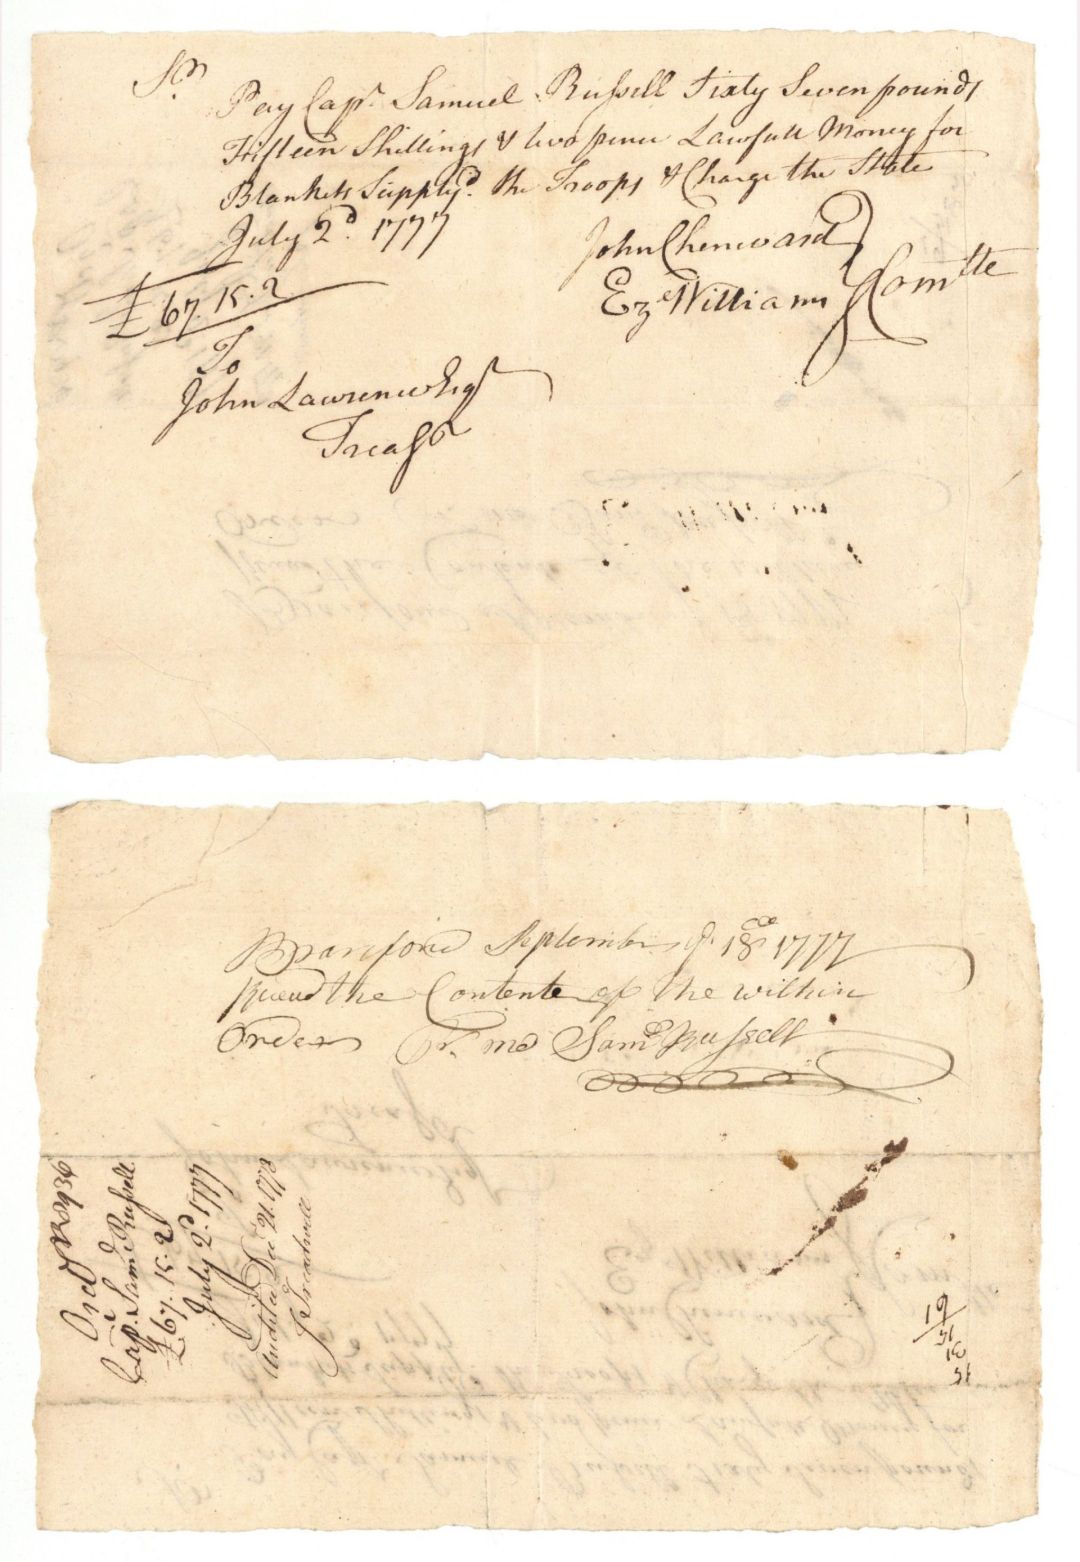 Sr
Pay Capt. Samuel Russell Sixty Seven pounds
Fifteen Shillings & two pence Lawfull Money for
Blankets Supplyd. the Troops & Charge the State
July 2d. 1777
John Chenward
Ez Williams } Comtte
£67.15.2
To
John Lawrence Esqr
Treasr
Branford September ye. 18 1777
Receivd the Contents of the within
Order Pr. me Saml Russell
Ord
Capt. Saml Russell
£67.15.2
July 2d. 1777
Audited Decr 21. 1778
J Treadwell